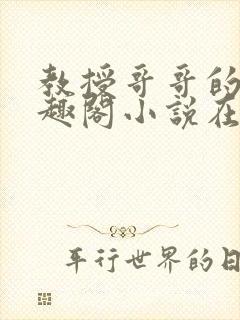 教授哥哥的
趣阁小说在
平行世界的日